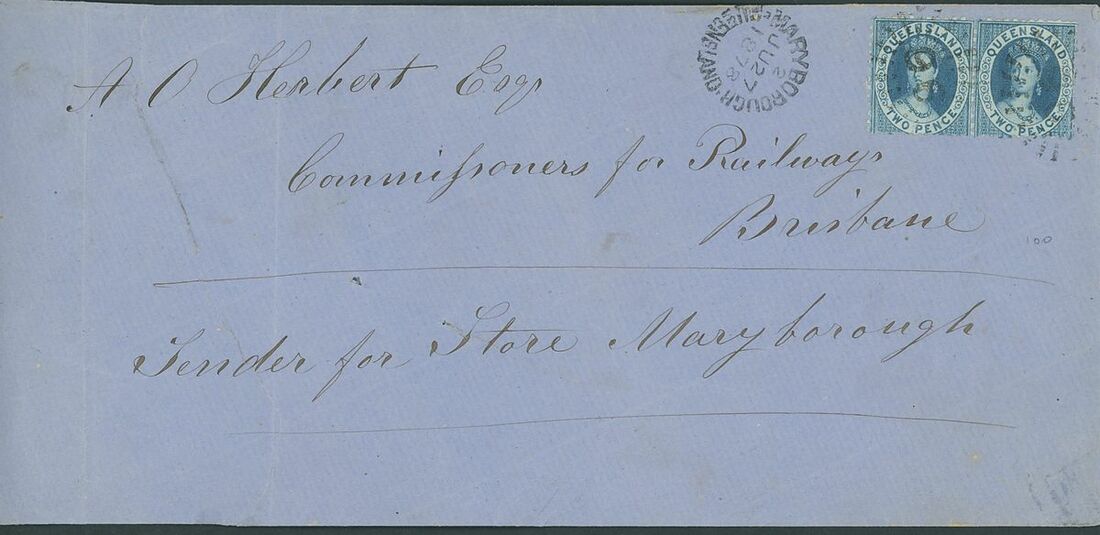 A O Herbert Esqr
Commissoners for Railways
Brisbane
Tender for Store Maryborough
MARYBOROUGH QUEENSLAND
JU 2
187
QUEENSLAND
TWO PENCE
QUEENSLAND
TWO PENCE
100